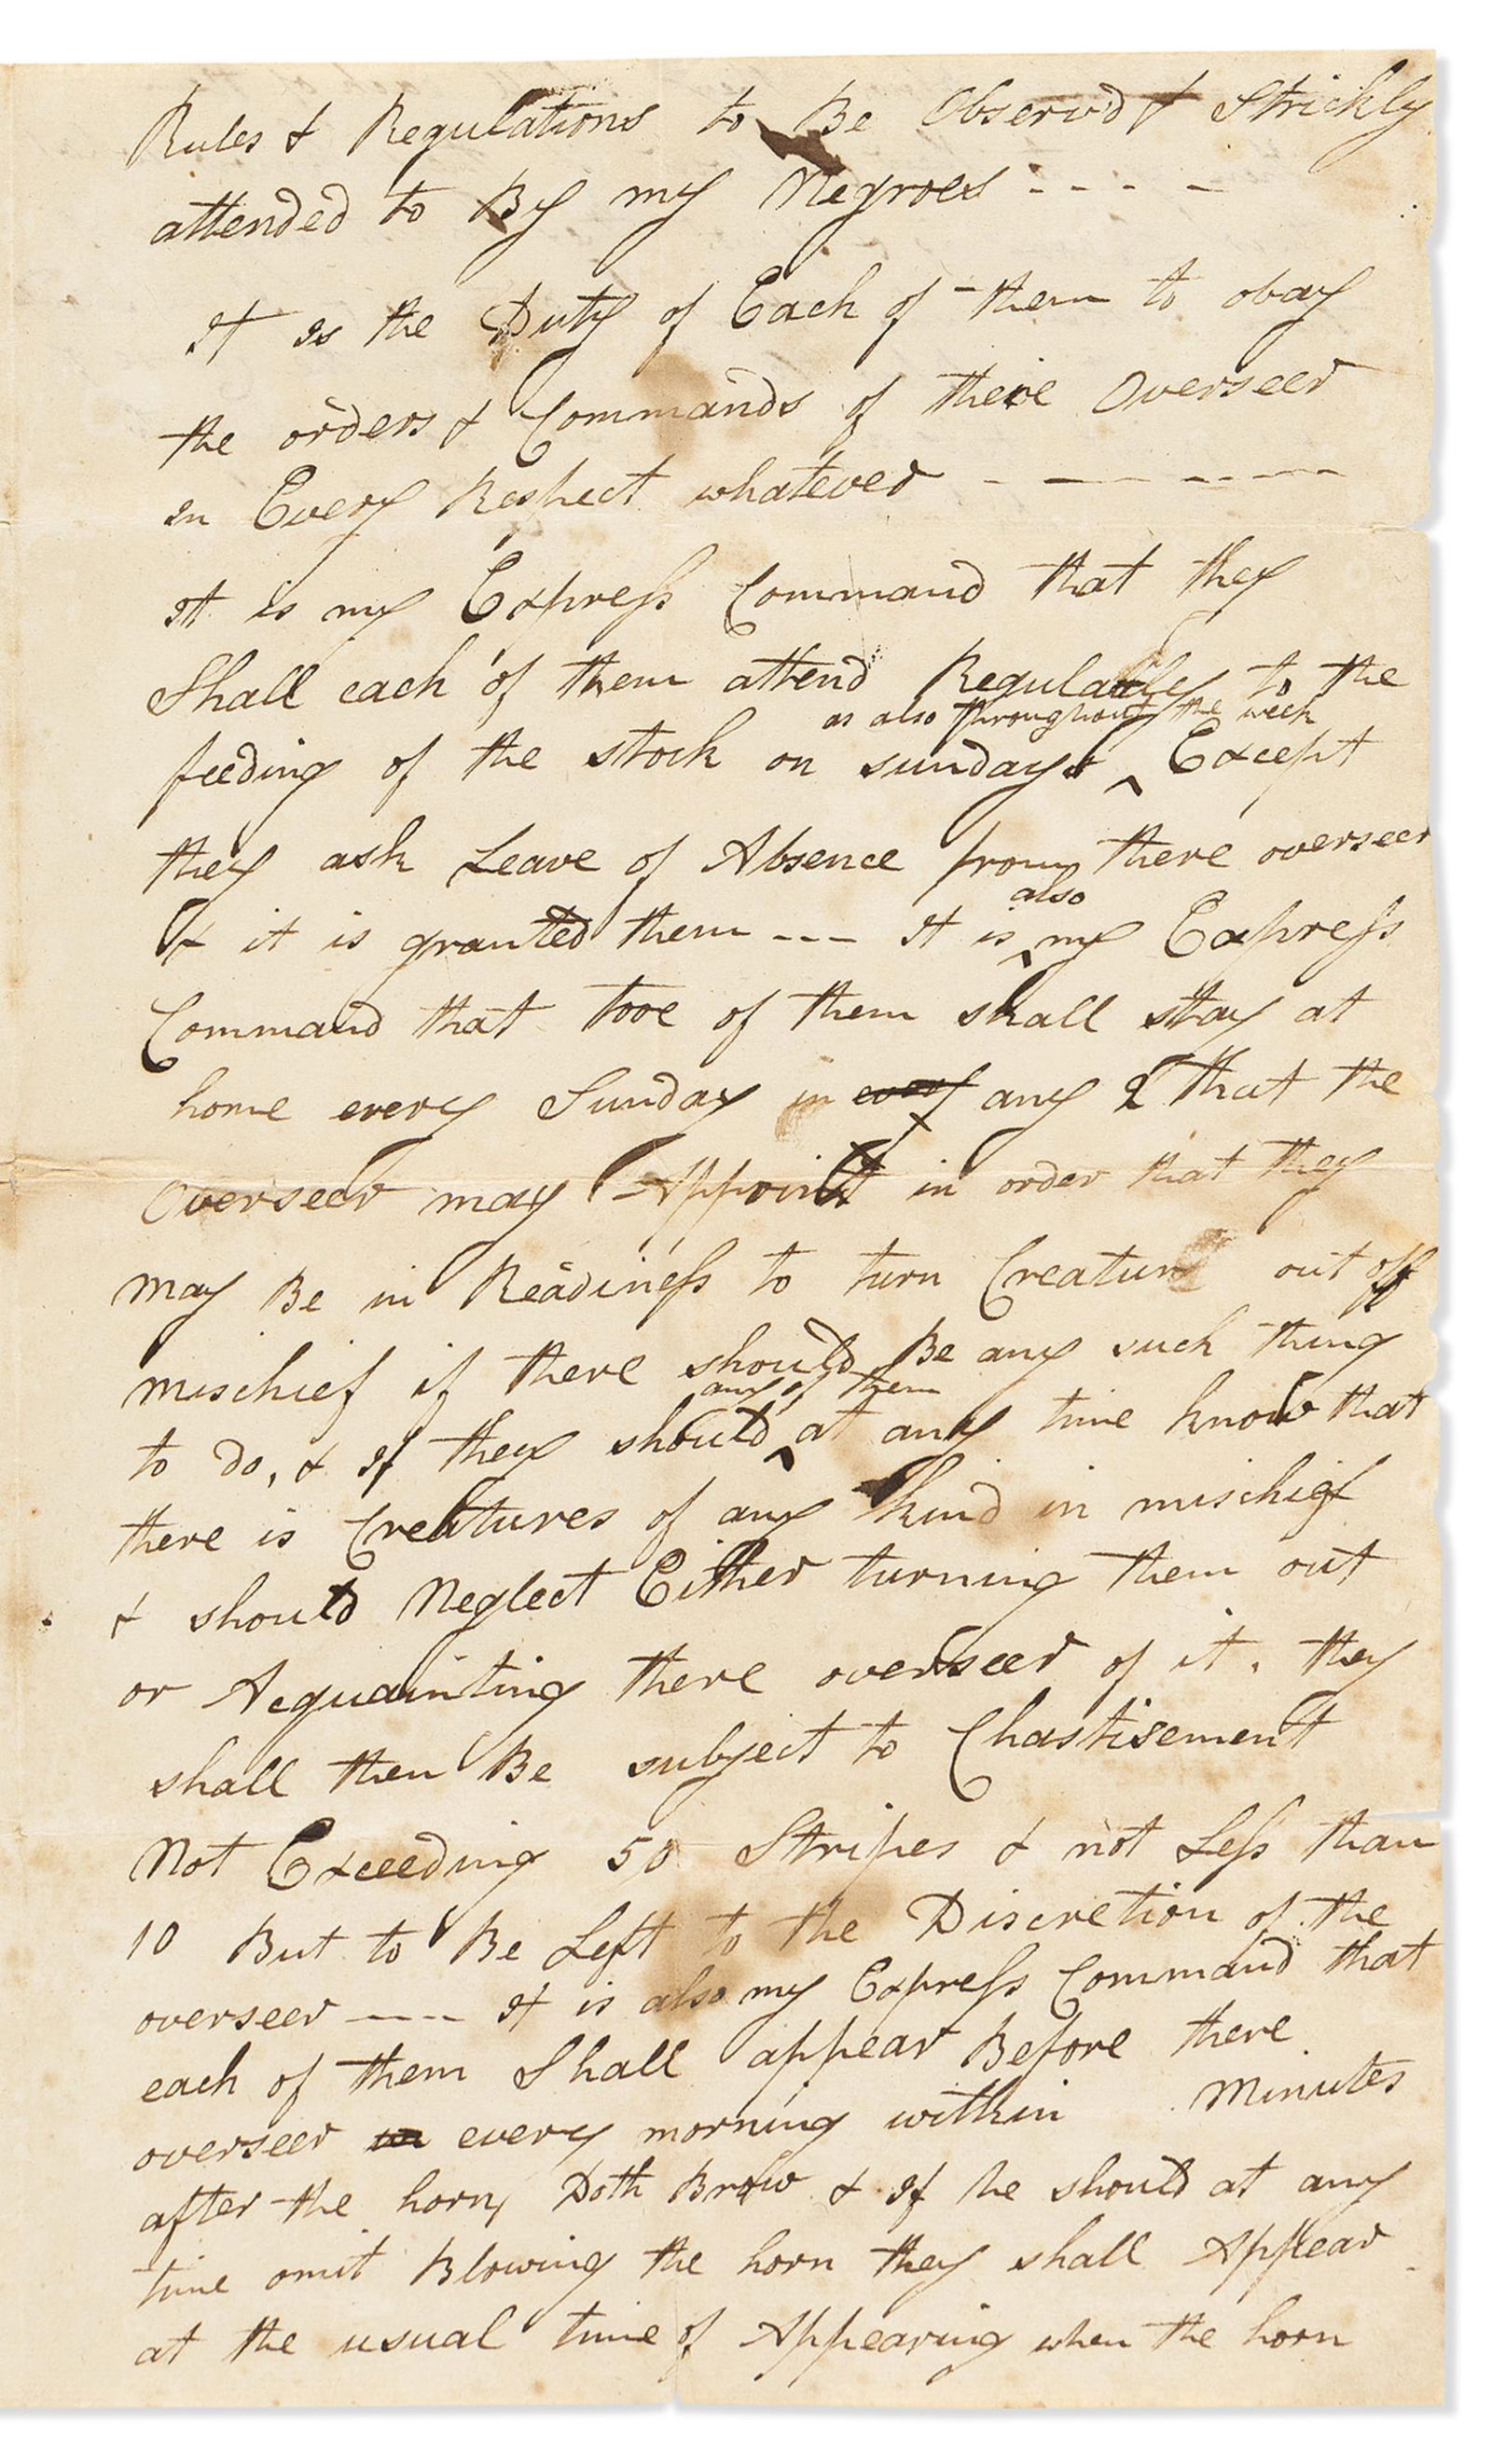 Rules & Regulations to Be Observd & Strickly
attended to By my Negroes - - - -
It Is the Duty of Each of them to obay
the orders & Commands of there Overseer
In Every Respect whatever - - - - - -
It is my Express Command that they
Shall each of them attend Regularly to the
as also throughout the week
feeding of the stock on sunday & ^ Except
they ask Leave of Absence from there overseer
& it is granted them --- It is ^ my Express
also
Command that tooe of them shall stay at
home every Sunday in any 2 that the
Overseer may Appoint in order that they
may Be in Readiness to turn Creature out off
mischief if there should Be any such thing
any of them
to do, & If they should ^ at any time know that
there is Creatures of any kind in mischief
& should Neglect Either turning them out
or Acquainting there overseer of it, they
shall then Be subject to Chastisement
Not Exceeding 50 Stripes & not Less than
10 But to Be Left to the Discretion of the
overseer --- It is also my Express Command that
each of them Shall appear Before there
overseer every morning within Minutes
after the horn Doth Brow & If he should at any
time omit Blowing the horn they shall Appear
at the usual time of Appearing when the horn